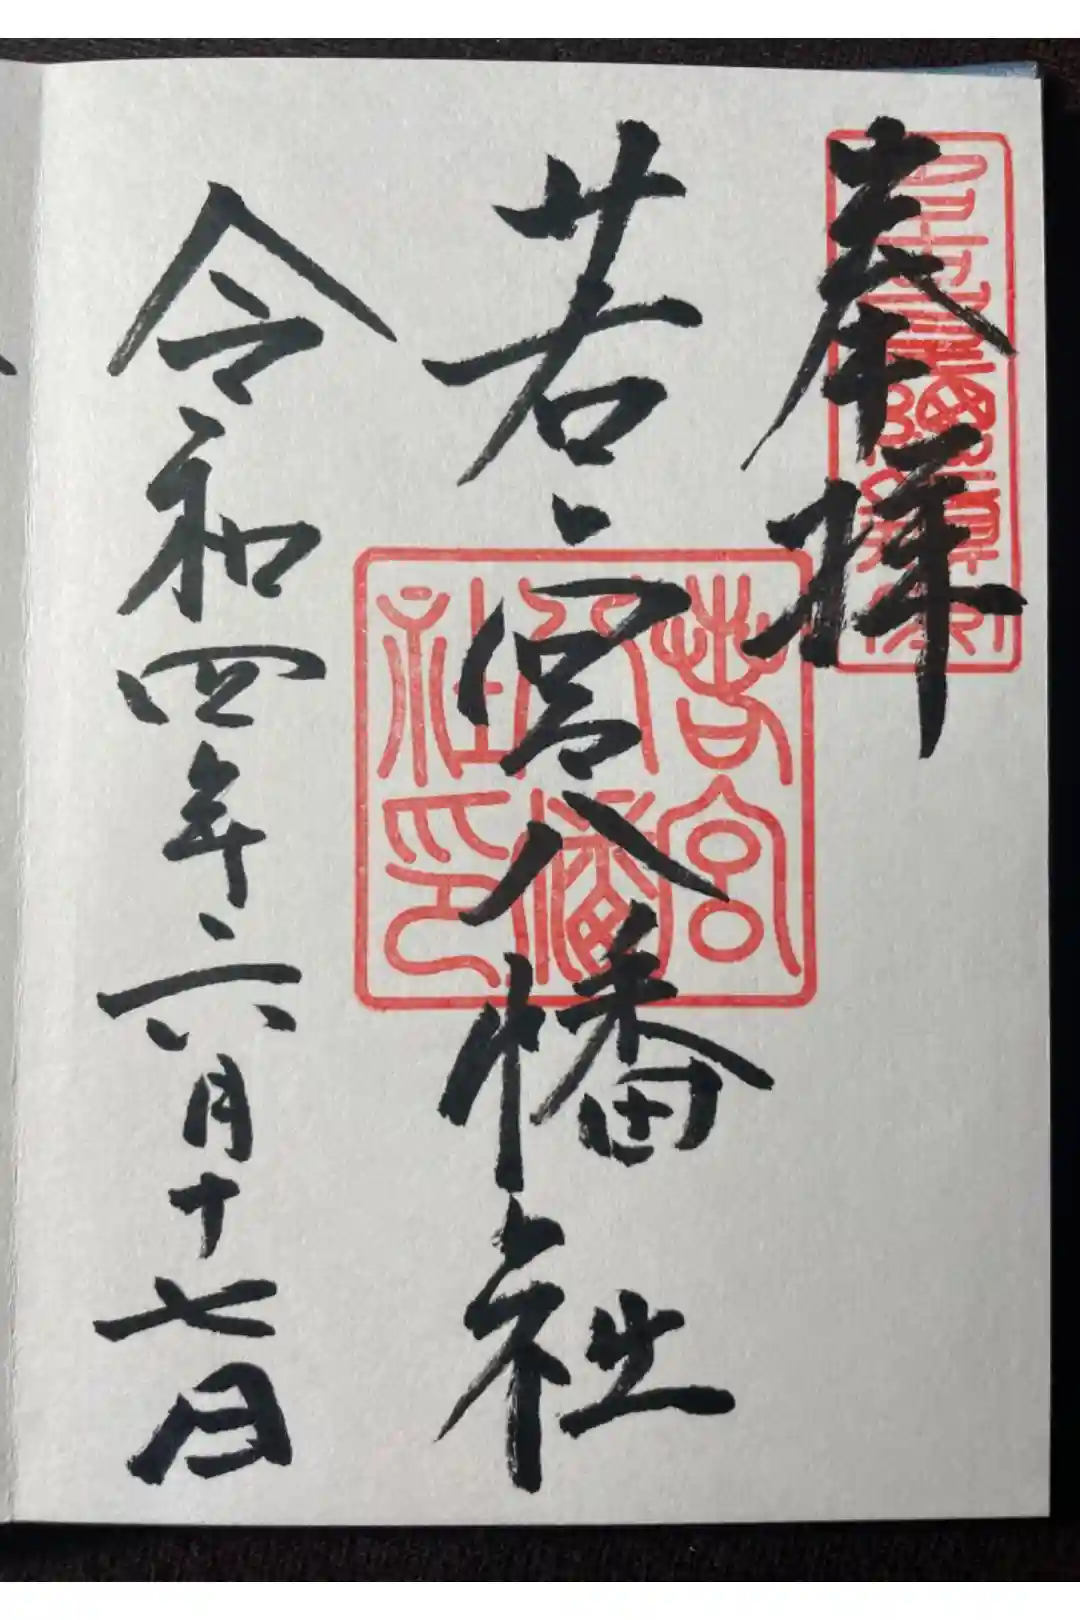 奉拝
若宮八幡社
若宮
八幡
社印
令和四年六月十七日